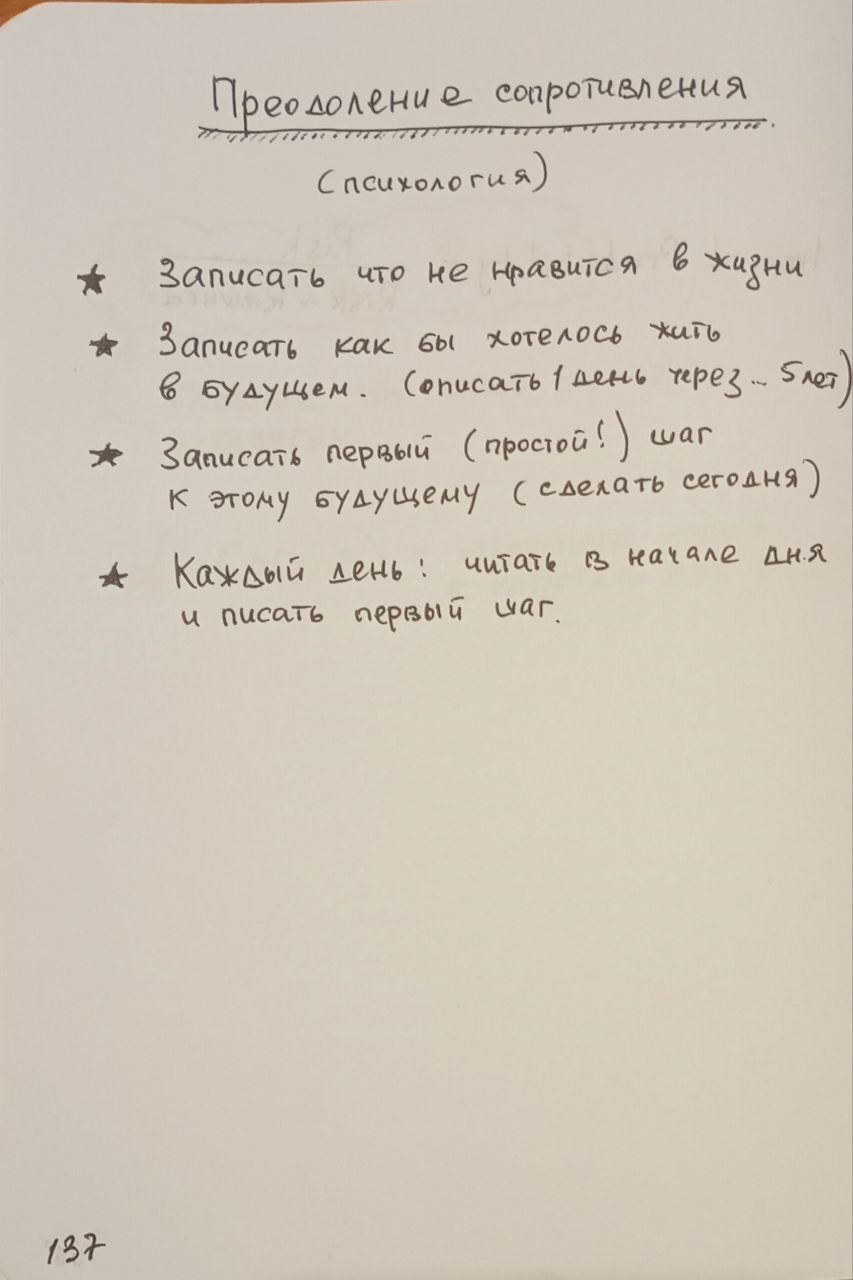 Преодоление сопротивления
(психология)
★ Записать что не нравится в жизни
★ Записать как бы хотелось жить
в будущем. (описать 1 день через... 5 лет)
★ Записать первый (простой!) шаг
к этому будущему (сделать сегодня)
★ Каждый день: читать в начале дня
и писать первый шаг.
137